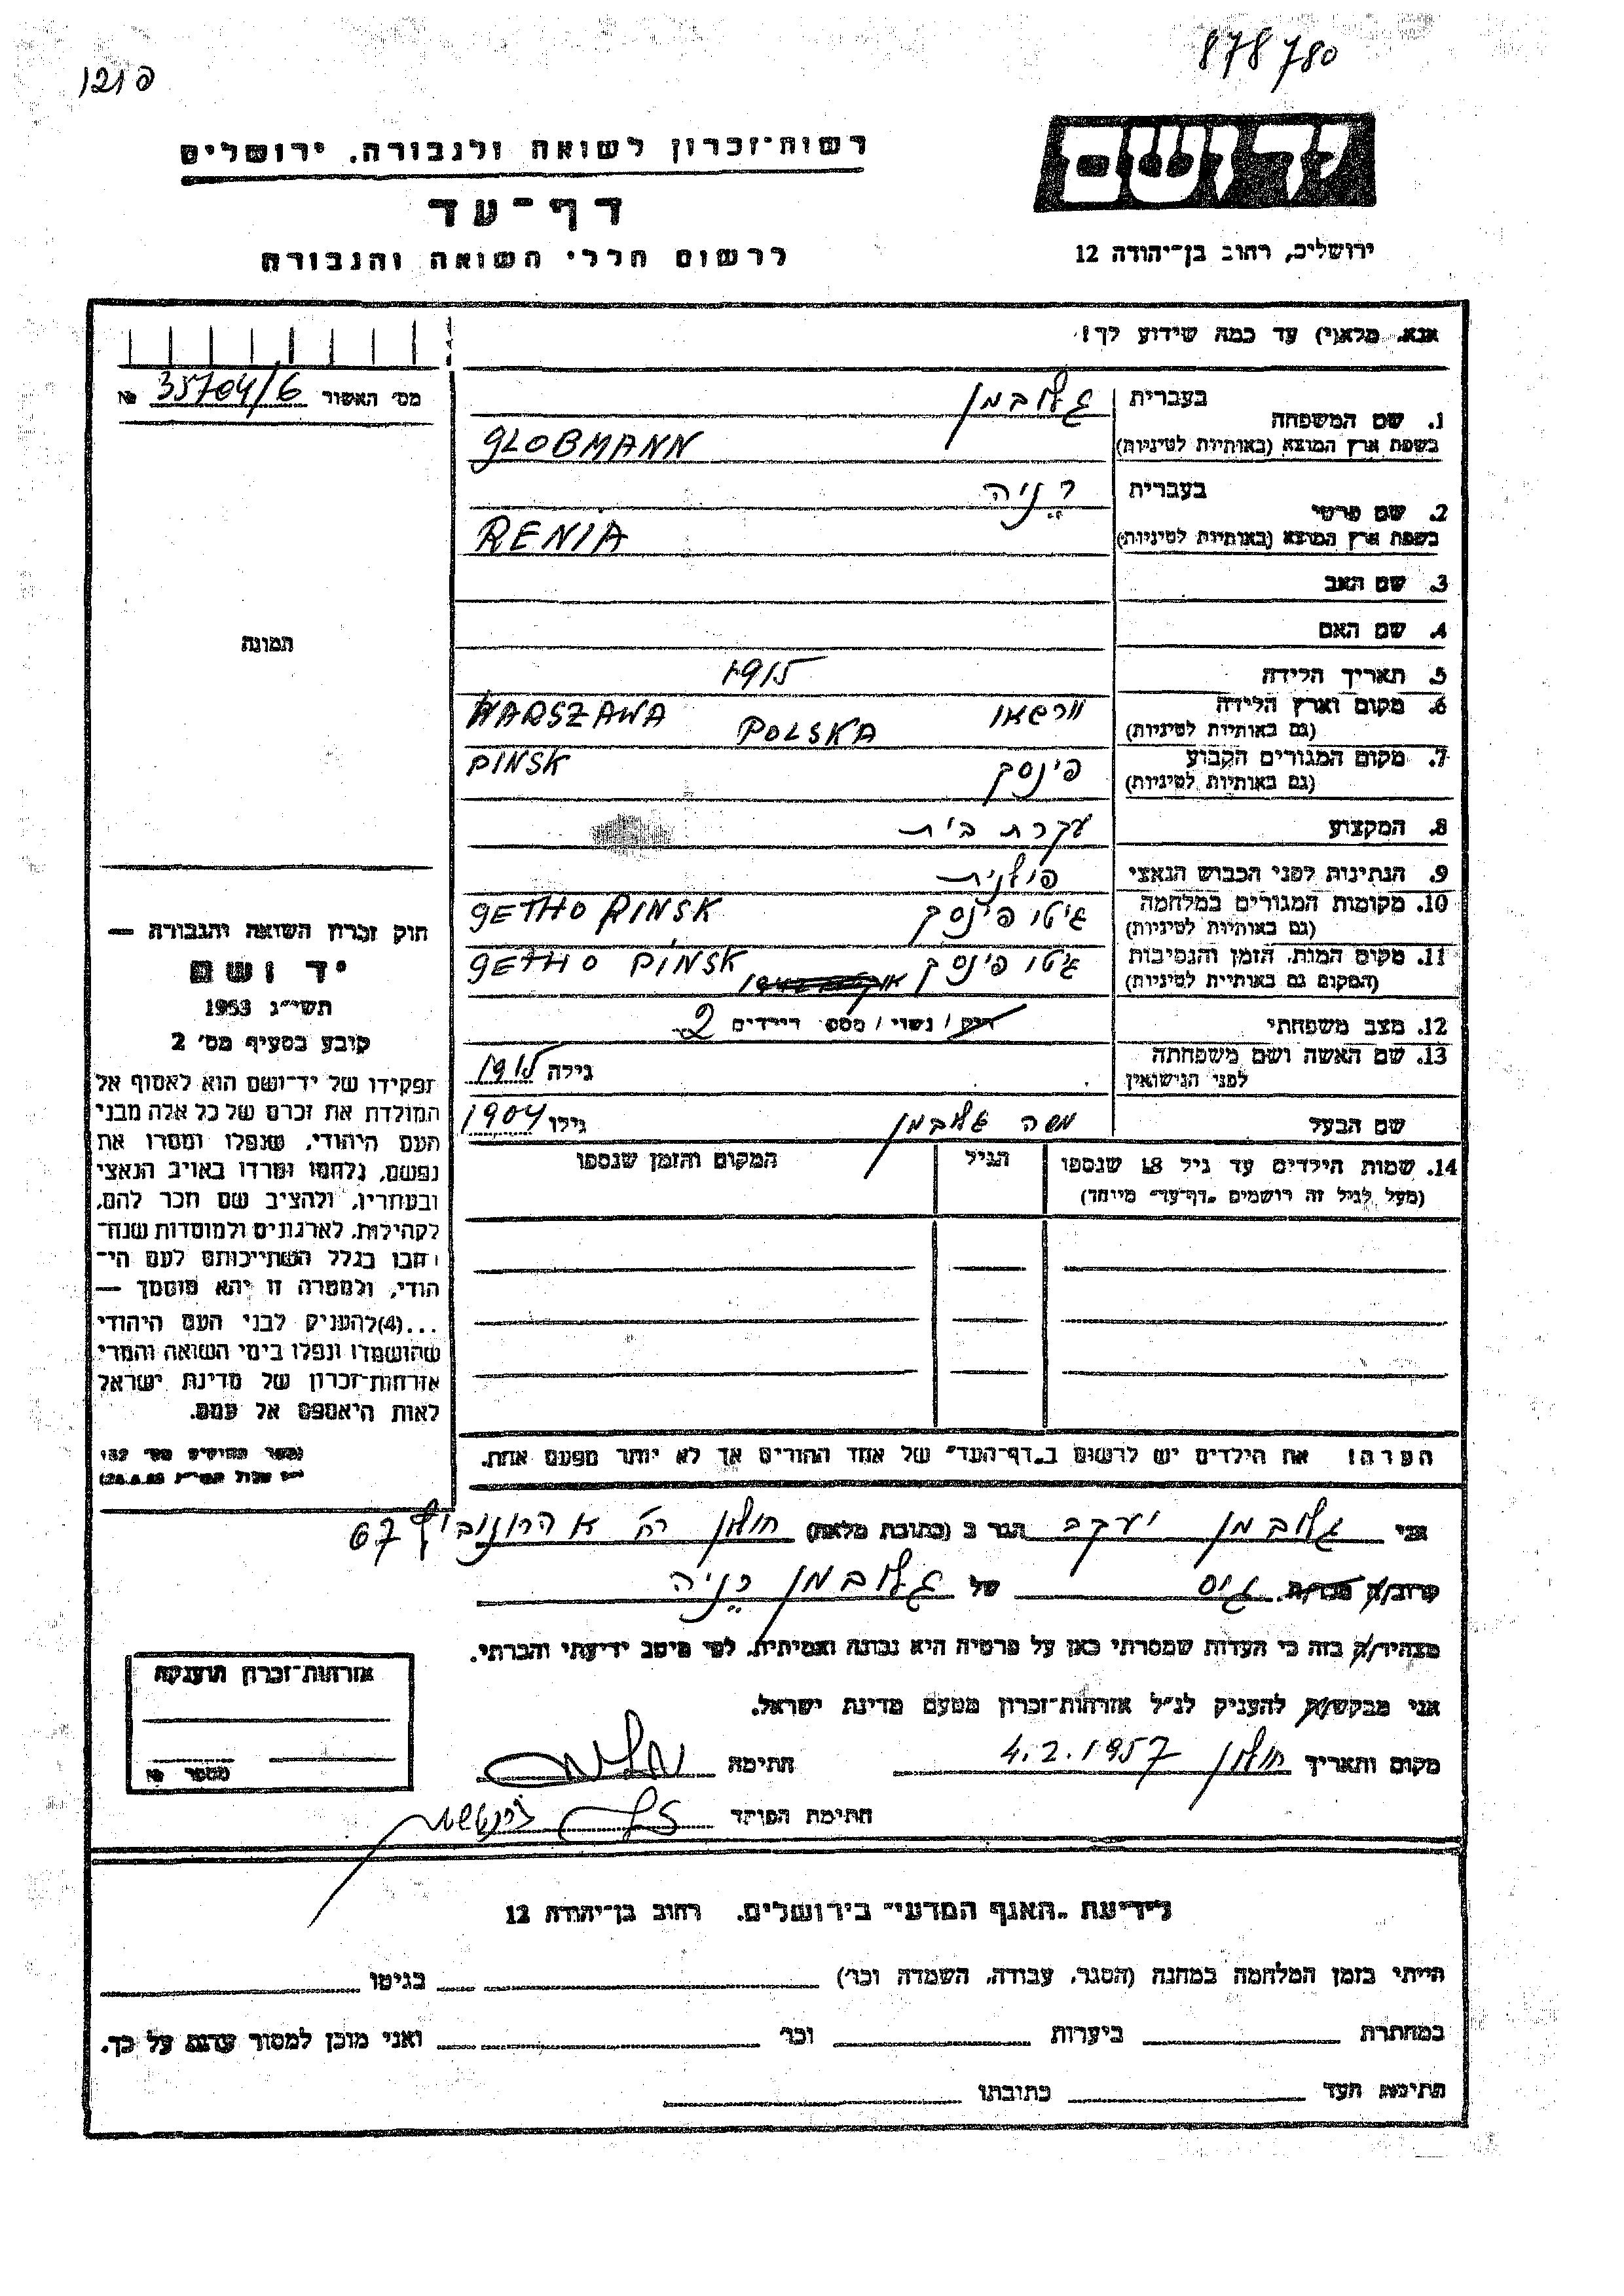 878780
121פ
יד ושם
רשות־זכרון לשואה ולגבורה. ירושלים
דף־עד
לרשום חללי השואה והגבורה
ירושלים, רחוב בן־יהודה 12
אנא. מלא(י) עד כמה שידוע לך!
מס׳ האשור 35704/6 №
תמונה
1. שם המשפחה בעברית גלובמן
בשפת ארץ המוצא (באותיות לטיניות) GLOBMANN
2. שם פרטי בעברית רֶניה
בשפת ארץ המוצא (באותיות לטיניות) RENIA
3. שם האב
4. שם האם
5. תאריך הלידה 1915
6. מקום וארץ הלידה (גם באותיות לטיניות) וורשאו POLSKA WARSZAWA
7. מקום המגורים הקבוע (גם באותיות לטיניות) פינסק PINSK
8. המקצוע עקרת בית
9. הנתינות לפני הכבוש הנאצי פולנית
10. מקומות המגורים במלחמה (גם באותיות לטיניות) גיטו פינסק GETHO PINSK
11. מקום המות. הזמן והנסיבות (המקום גם באותיות לטיניות) גיטו פינסק GETHO PINSK
12. מצב משפחתי רוק / נשוי / מספ׳ הילדים 2
13. שם האשה ושם משפחתה לפני הנישואין גילה 1915
שם הבעל משה גלובמן גילו 1904
14. שמות הילדים עד גיל 18 שנספו הגיל המקום והזמן שנספו
(מעל לגיל זה רושמים „דף־עד״ מיוחד)
חוק זכרון השואה והגבורה —
יד ושם
תשי״ג 1953
קובע בסעיף מס׳ 2
תפקידו של יד־ושם הוא לאסוף אל
המולדת את זכרם של כל אלה מבני
העם היהודי, שנפלו ומסרו את
נפשם, נלחמו ומרדו באויב הנאצי
ובעוזריו, ולהציב שם וזכר להם,
לקהילות, לארגונים ולמוסדות שנח־
רבו בגלל השתייכותם לעם הי־
הודי, ולמטרה זו יהא מוסמך —
...(4)להעניק לבני העם היהודי
שהושמדו ונפלו בימי השואה והמרי
אזרחות־זכרון של מדינת ישראל
לאות היאספם אל עמם.
הערה! את הילדים יש לרשום ב„דף־העד״ של אחד ההורים אך לא יותר מפעם אחת.
אני גלובמן יעקב הגר ב (כתובת מלאה) חולון רח׳ אהרונוביץ 67
קרוב/ה מכר/ה. גיס של גלובמן רֶניה
מצהיר/ה בזה כי העדות שמסרתי כאן על פרטיה היא נכונה ואמיתית. לפי מיטב ידיעתי והכרתי.
אני מבקש/ת להעניק לנ״ל אזרחות־זכרון מטעם מדינת ישראל.
מקום ותאריך חולון 4.2.1957 חתימה
חתימת הפוקד
אזרחות־זכרון הוענקה
מספר №
לידיעת „האגף המדעי״ בירושלים. רחוב בן־יהודה 12
הייתי בזמן המלחמה במחנה (הסגר, עבודה, השמדה וכו׳) בגיטו
במחתרת ביערות וכו׳ ואני מוכן למסור עדות על כך.
חתימת העד כתובתו